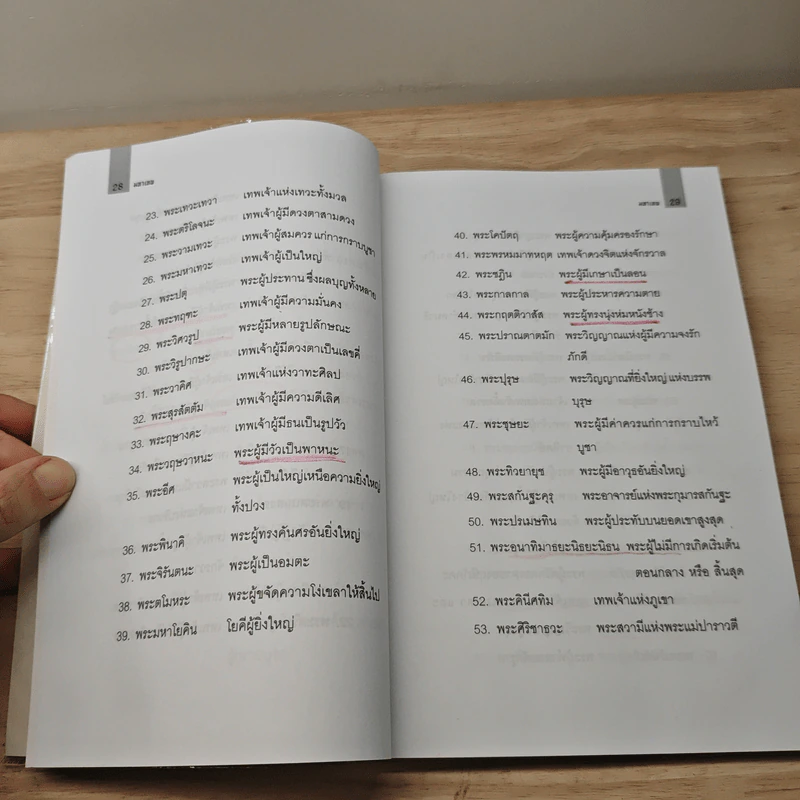 28 มหาเทพ
23. พระเทวะเทวา เทพเจ้าแห่งเทวะทั้งมวล
24. พระตรีโลจนะ เทพเจ้าผู้มีดวงตาสามดวง
25. พระวามเทวะ เทพเจ้าผู้สมควร แก่การกราบบูชา
26. พระมหาเทวะ เทพเจ้าผู้เป็นใหญ่
27. พระปตุ พระผู้ประทาน ซึ่งผลบุญทั้งหลาย
28. พระทฤฑะ เทพเจ้าผู้มีความมั่นคง
29. พระวิศวรูป พระผู้มีหลายรูปลักษณะ
30. พระวิรูปากษะ เทพเจ้าผู้มีดวงตาเป็นเลศดี่
31. พระวาคิศ เทพเจ้าแห่งวาทะศิลป
32. พระสุรสัตตัม เทพเจ้าผู้มีความดีเลิศ
33. พระฤษางคะ เทพเจ้าผู้มีธนเป็นรูปวัว
34. พระวฤษวาหนะ พระผู้มีวัวเป็นพาหนะ
35. พระอีศ พระผู้เป็นใหญ่เหนือความยิ่งใหญ่
ทั้งปวง
36. พระพินาคิ พระผู้ทรงคันศรอันยิ่งใหญ่
37. พระจิรันตนะ พระผู้เป็นอมตะ
38. พระตโมหระ พระผู้ขจัดความโง่เขลาให้สิ้นไป
39. พระมหาโยคิน โยคีผู้ยิ่งใหญ่
มหาเทพ 29
40. พระโคปัตฤ พระผู้ความคุ้มครองรักษา
41. พระพรหมมาทหฤต เทพเจ้าดวงจิตแห่งจักรวาล
42. พระชฎิน พระผู้มีเกษาเป็นลอน
43. พระกาลกาล พระผู้ประหารความตาย
44. พระกฤตติวาสัส พระผู้ทรงนุ่งห่มหนังช้าง
45. พระปราณตาตมัก พระวิญญาณแห่งผู้มีความจงรัก
ภักดี
46. พระปุรุษ พระวิญญาณที่ยิ่งใหญ่ แห่งบรรพ
บุรุษ
47. พระชุษยะ พระผู้มีค่าควรแก่การกราบไหว้
บูชา
48. พระทิวยายุช พระผู้มีอาวุธอันยิ่งใหญ่
49. พระสกันฐะคุรุ พระอาจารย์แห่งพระกุมารสกันฐะ
50. พระปรเมษทิน พระผู้ประทับบนยอดเขาสูงสุด
51. พระอนาทิมาธยะนิธยะนิธน พระผู้ไม่มีการเกิดเริ่มต้น
ตอนกลาง หรือ สิ้นสุด
52. พระคินีศทิม เทพเจ้าแห่งภูเขา
53. พระศิริชาธวะ พระสวามีแห่งพระแม่ปาราวตี